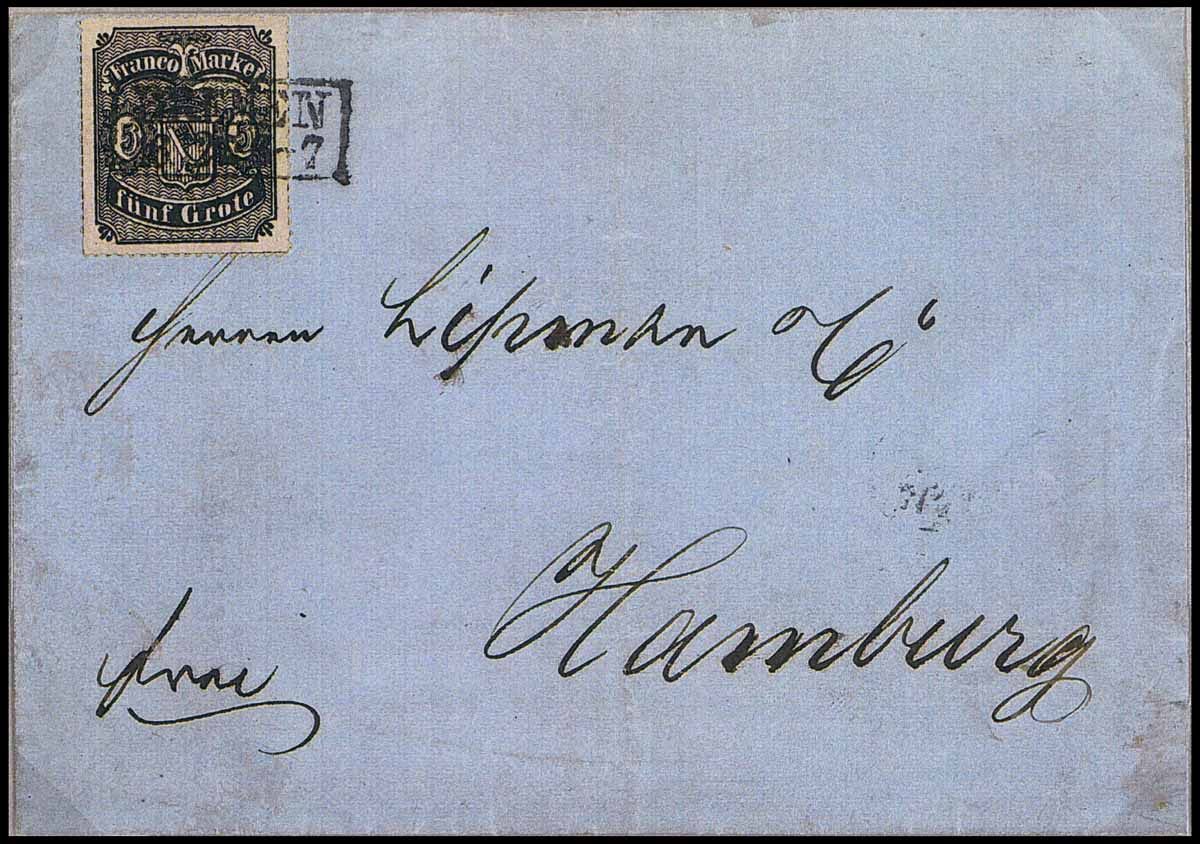 Franco Marke
5 5
fünf Grote
BREMEN
7
Herren Lipman & Co
Hamburg
frei